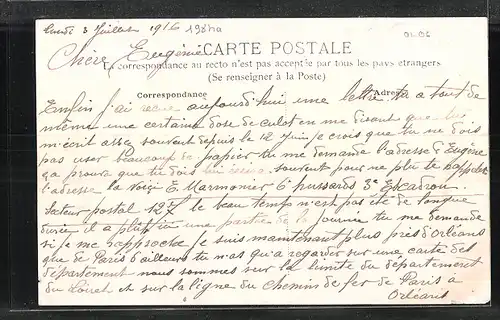 Lundi 3 Juillet 1916
Chère Eugénie
CARTE POSTALE
La correspondance au recto n'est pas acceptée par tous les pays étrangers
(Se renseigner à la Poste)
Correspondance
Adresse
Enfin j'ai reçue aujourd'hui une lettre ta a tout de
même une certaine dose de culot en me disant que
m'écrit assez souvent depuis le 12 Juin je crois que tu ne dois
pas user beaucoup de papier tu me demande l'adresse d'Eugène
ça prouve que tu dois lui souvent pour ne plu te rappeler
l'adresse la voiçi E Marmonier 6e hussards 3e Escadron
Secteur postal 127 le beau temps n'est pas été de longue
durée il a plut une partie de la journée tu me demande
si je me rapproche je suis maintenant plus près d'Orléans
que de Paris d'ailleurs tu n'as qu'a regarder sur une carte des
département nous sommes sur la limite du département
du Loiret et sur la ligne du chemin de fer de Paris à
Orléans